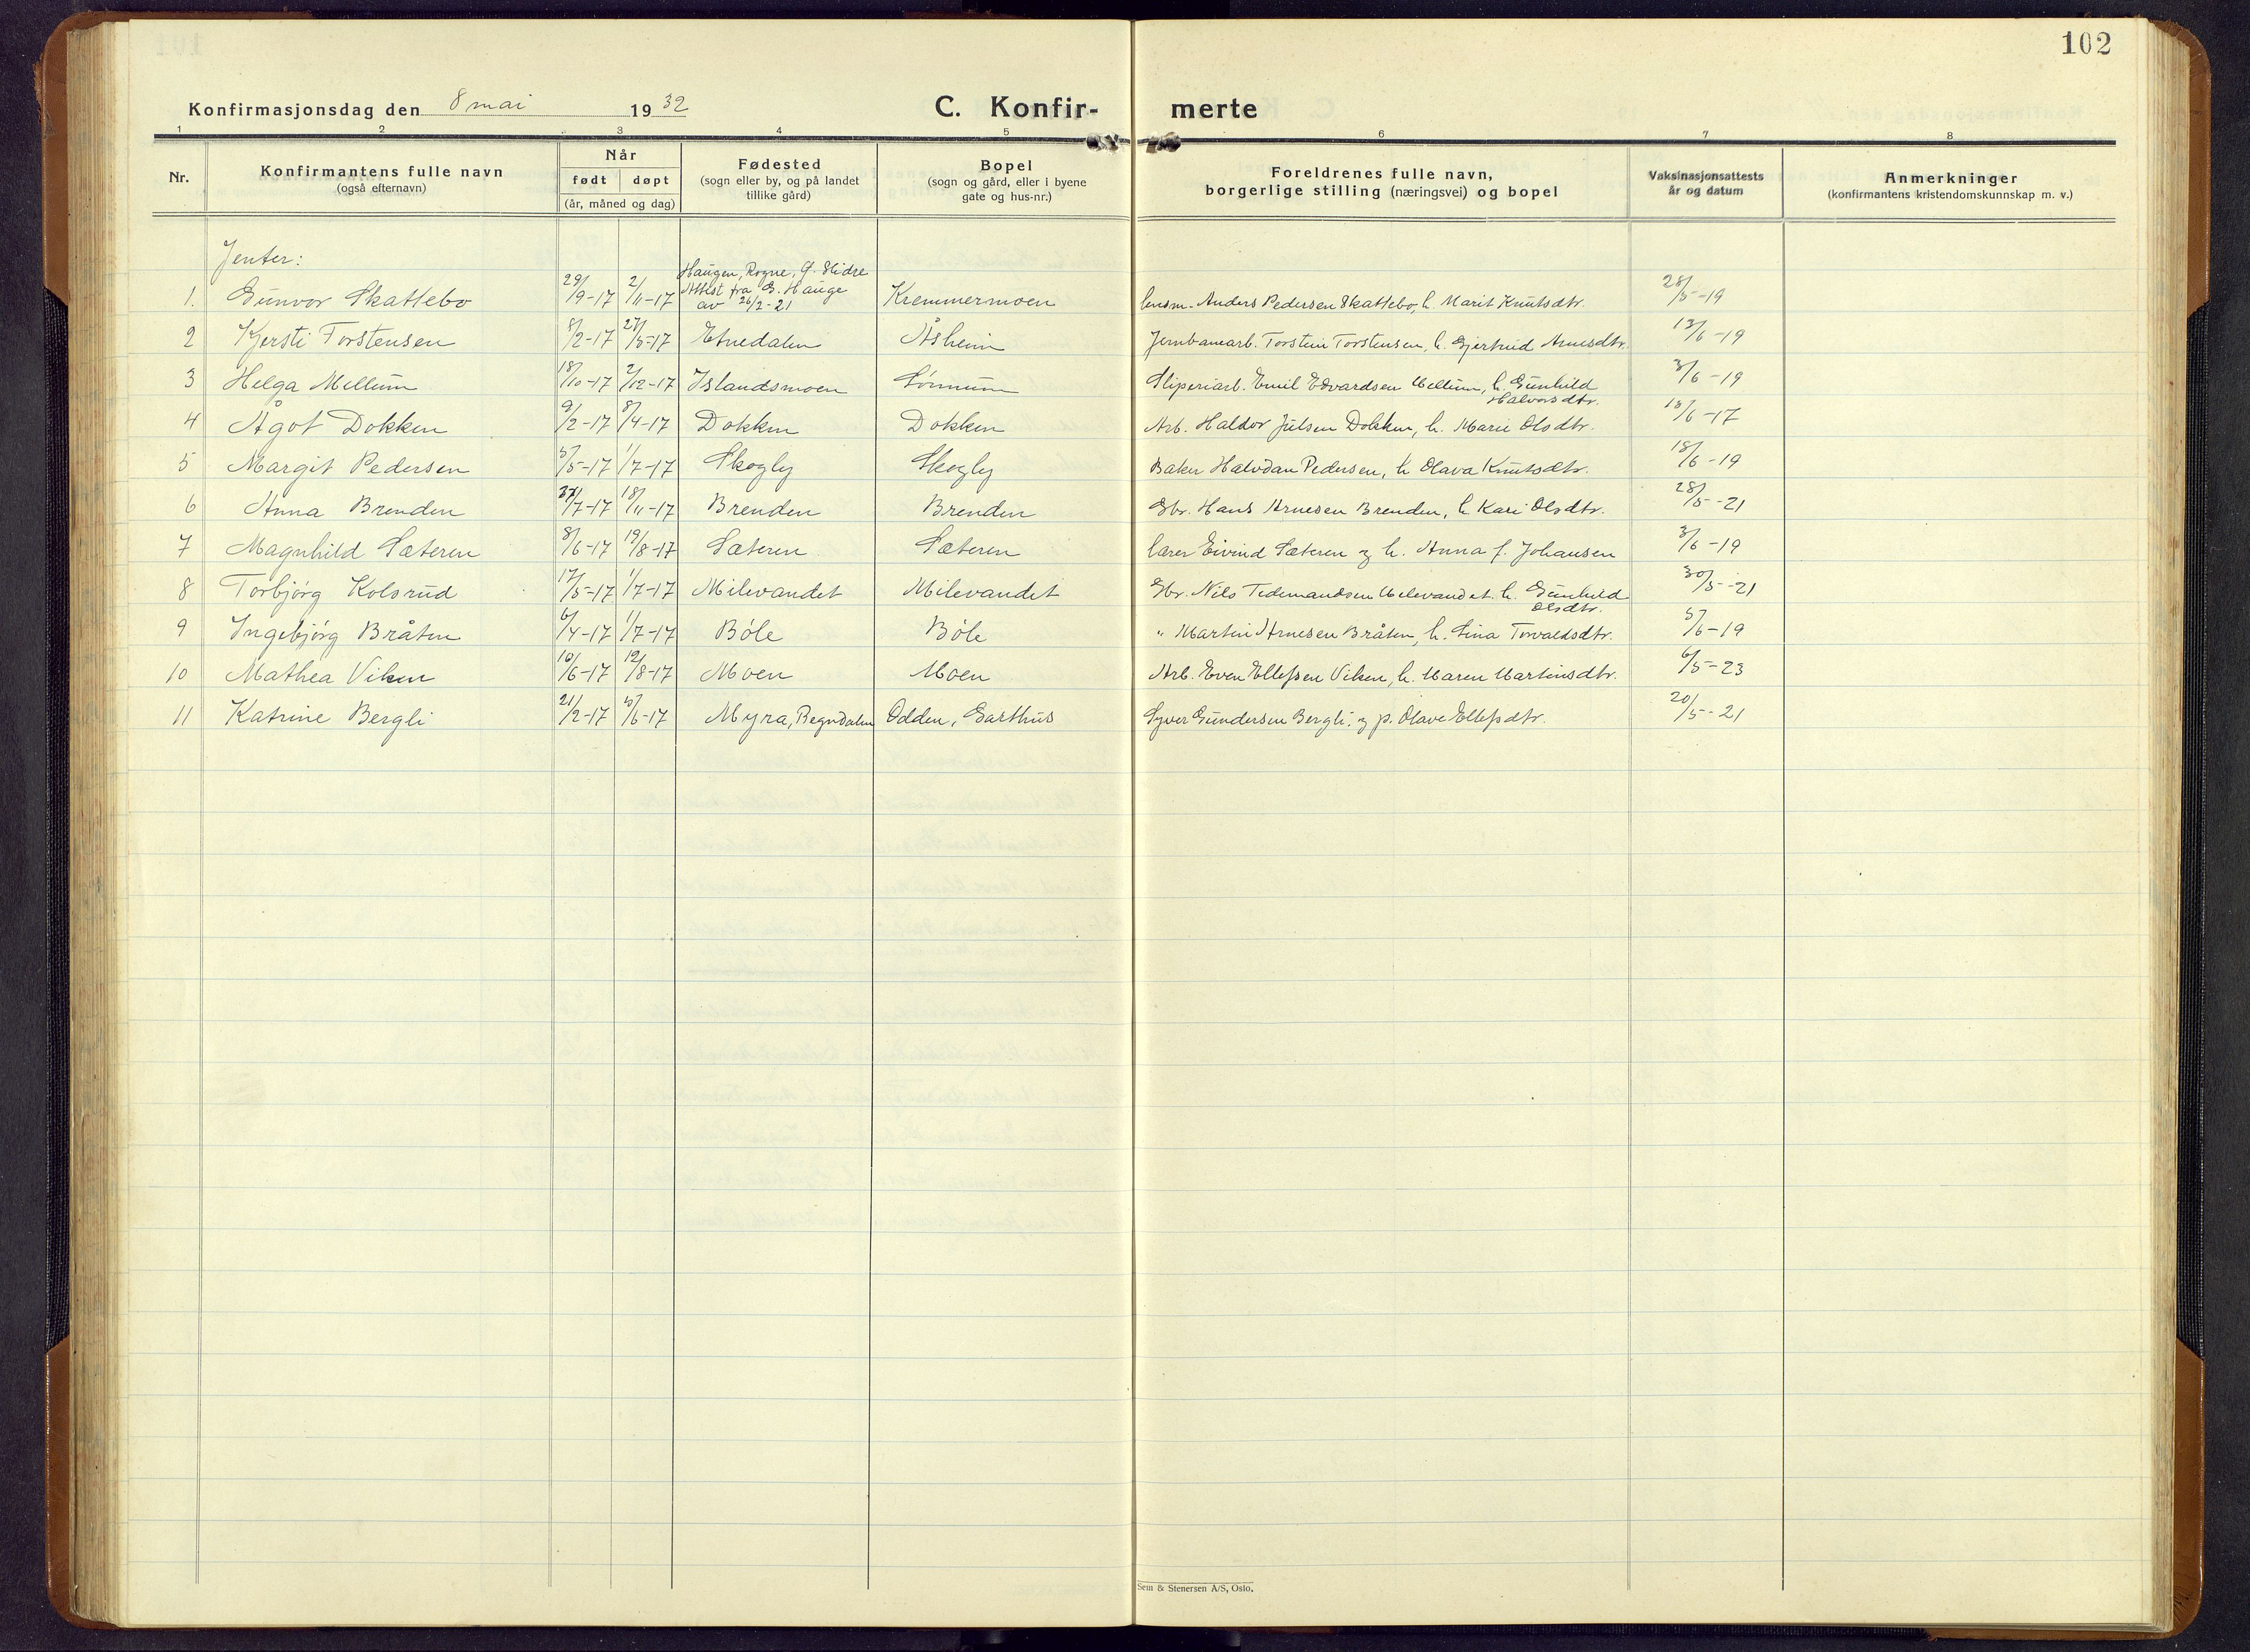 102
Konfirmasjonsdag den 8 mai 1932
C. Konfir- merte
1 2 3 4 5 6 7 8
Nr.
Konfirmantens fulle navn
(også efternavn)
Når
født døpt
(år, måned og dag)
Fødested
(sogn eller by, og på landet
tillike gård)
Bopel
(sogn og gård, eller i byene
gate og hus-nr.)
Foreldrenes fulle navn,
borgerlige stilling (næringsvei) og bopel
Vaksinasjonsattests
år og datum
Anmerkninger
(konfirmantens kristendomskunnskap m. v.)
Jenter:
Haugen, Rogne, Ø. Slidre
Attest fra G. Hauge
av 26/2-21
1. Gunvor Skattebo 29/9-17 2/11-17 Kremmermoen lensm. Anders Pedersen Skattebo, h. Marit Knutsdtr. 28/5-19
2 Kjersti Torstensen 8/2-17 27/5-17 Etnedalen Åsheim Jernbanearb. Torstein Torstensen, h. Gjertrud Arnesdtr. 13/6-19
3 Helga Mellum 18/10-17 2/12-17 Islandsmoen Sønnum Sliperiarb. Emil Edvardsen Mellum, h. Gunhild
Halvorsdtr. 3/6-19
4 Ågot Dokken 9/2-17 8/4-17 Dokken Dokken Arb. Haldor Julsen Dokken, h. Marie Olsdtr. 18/6-17
5 Margit Pedersen 5/5-17 1/7-17 Skogly Skogly Baker Halvdan Pedersen, h. Olava Knutsdtr. 18/6-19
6 Anna Brenden /7-17 18/11-17 Brenden Brenden Gbr. Hans Arnesen Brenden, h. Kari Olsdtr. 28/5-21
7 Magnhild Sæteren 8/6-17 19/8-17 Sæteren Sæteren lærer Eivind Sæteren og h. Anna f. Johansen 3/6-19
8 Torbjørg Kolsrud 17/5-17 1/7-17 Milevandet Milevandet Gbr. Nils Tidemandsen Milevandet. h. Gunhild
Olsdtr. 30/5-21
9 Ingebjørg Bråten 6/4-17 1/7-17 Bøle Bøle " Martin Arnesen Bråten, h. Lina Torvaldsdtr. 5/6-19
10 Mathea Viken 10/6-17 12/8-17 Moen Moen Arb. Even Ellefsen Viken, h. Maren Martinsdtr. 6/5-23
11 Katrine Bergli 21/2-17 3/6-17 Myra, Begndalen Odden, Garthus Syver Gundersen Bergli, og p. Olave Ellefsdtr. 20/5-21
Sem & Stenersen A/S, Oslo.